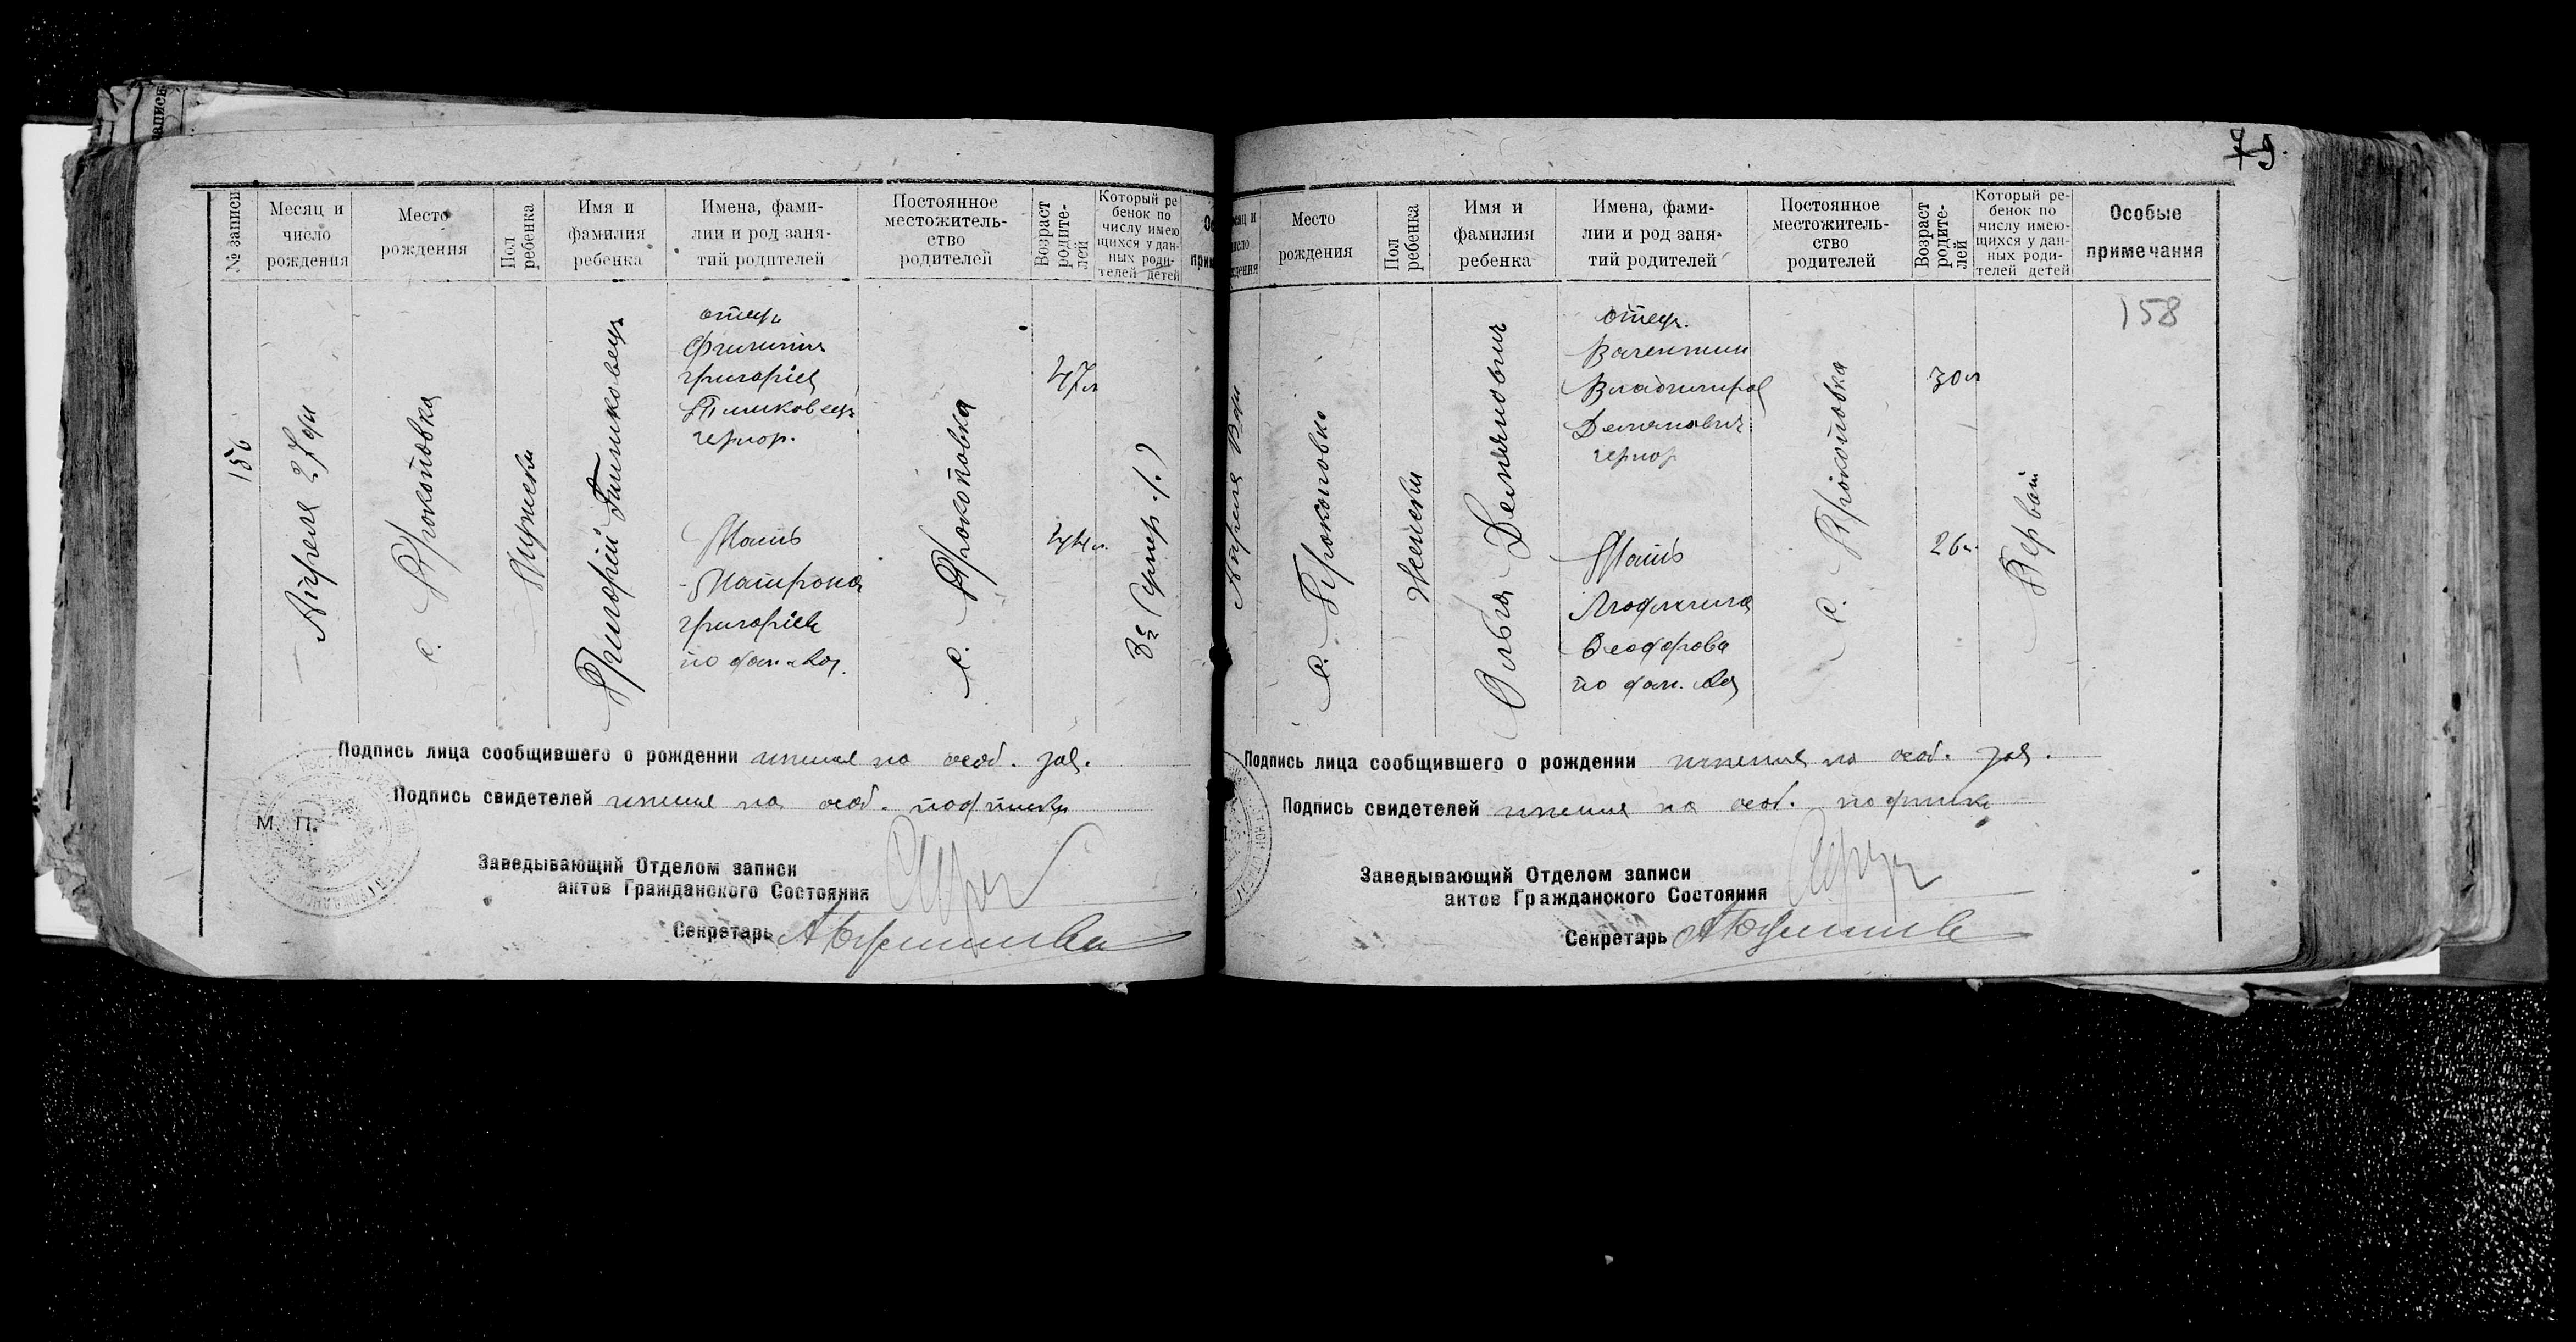 79.
№ записи
Месяц и
число
рождения
Место
рождения
Пол
ребенка
Имя и
фамилия
ребенка
Имена, фами-
лии и род заня-
тий родителей
Постоянное
местожитель-
ство
родителей
Возраст
родите-
лей
Который ре
бенок по
числу имею
щихся у дан-
ных роди-
телей детей
156
Апреля 27 дня
с. Прокоповка
Мужески
Григорий
отец
Филипп
Григориев
чернор.
Мать
Матрона
Григориев
по фам.
с. Прокоповка
47 л
44 л.
3й (умер. 1.)
Подпись лица сообщившего о рождении имеется на особ. заяв.
Подпись свидетелей имеется на особ. подписке
М. П.
Заведывающий Отделом записи
актов Гражданского Состояния
Секретарь
Место
рождения
Пол
ребенка
Имя и
фамилия
ребенка
Имена, фами-
лии и род заня-
тий родителей
Постоянное
местожитель-
ство
родителей
Возраст
родите-
лей
Который ре-
бенок по
числу имею-
щихся у дан-
ных роди-
телей детей
Особые
примечания
158
Апреля
с. Прокоповка
Женски
Ольга Демянович
отец.
Валентин
Владимиров
Демянович
чернор
Мать
Людмила
Феодорова
по фам.
с. Прокоповка
30 л
26 л.
Первый
Подпись лица сообщившего о рождении имеется на особ. заяв.
Подпись свидетелей имеется на особ. подписке
Заведывающий Отделом записи
актов Гражданского Состояния
Секретарь